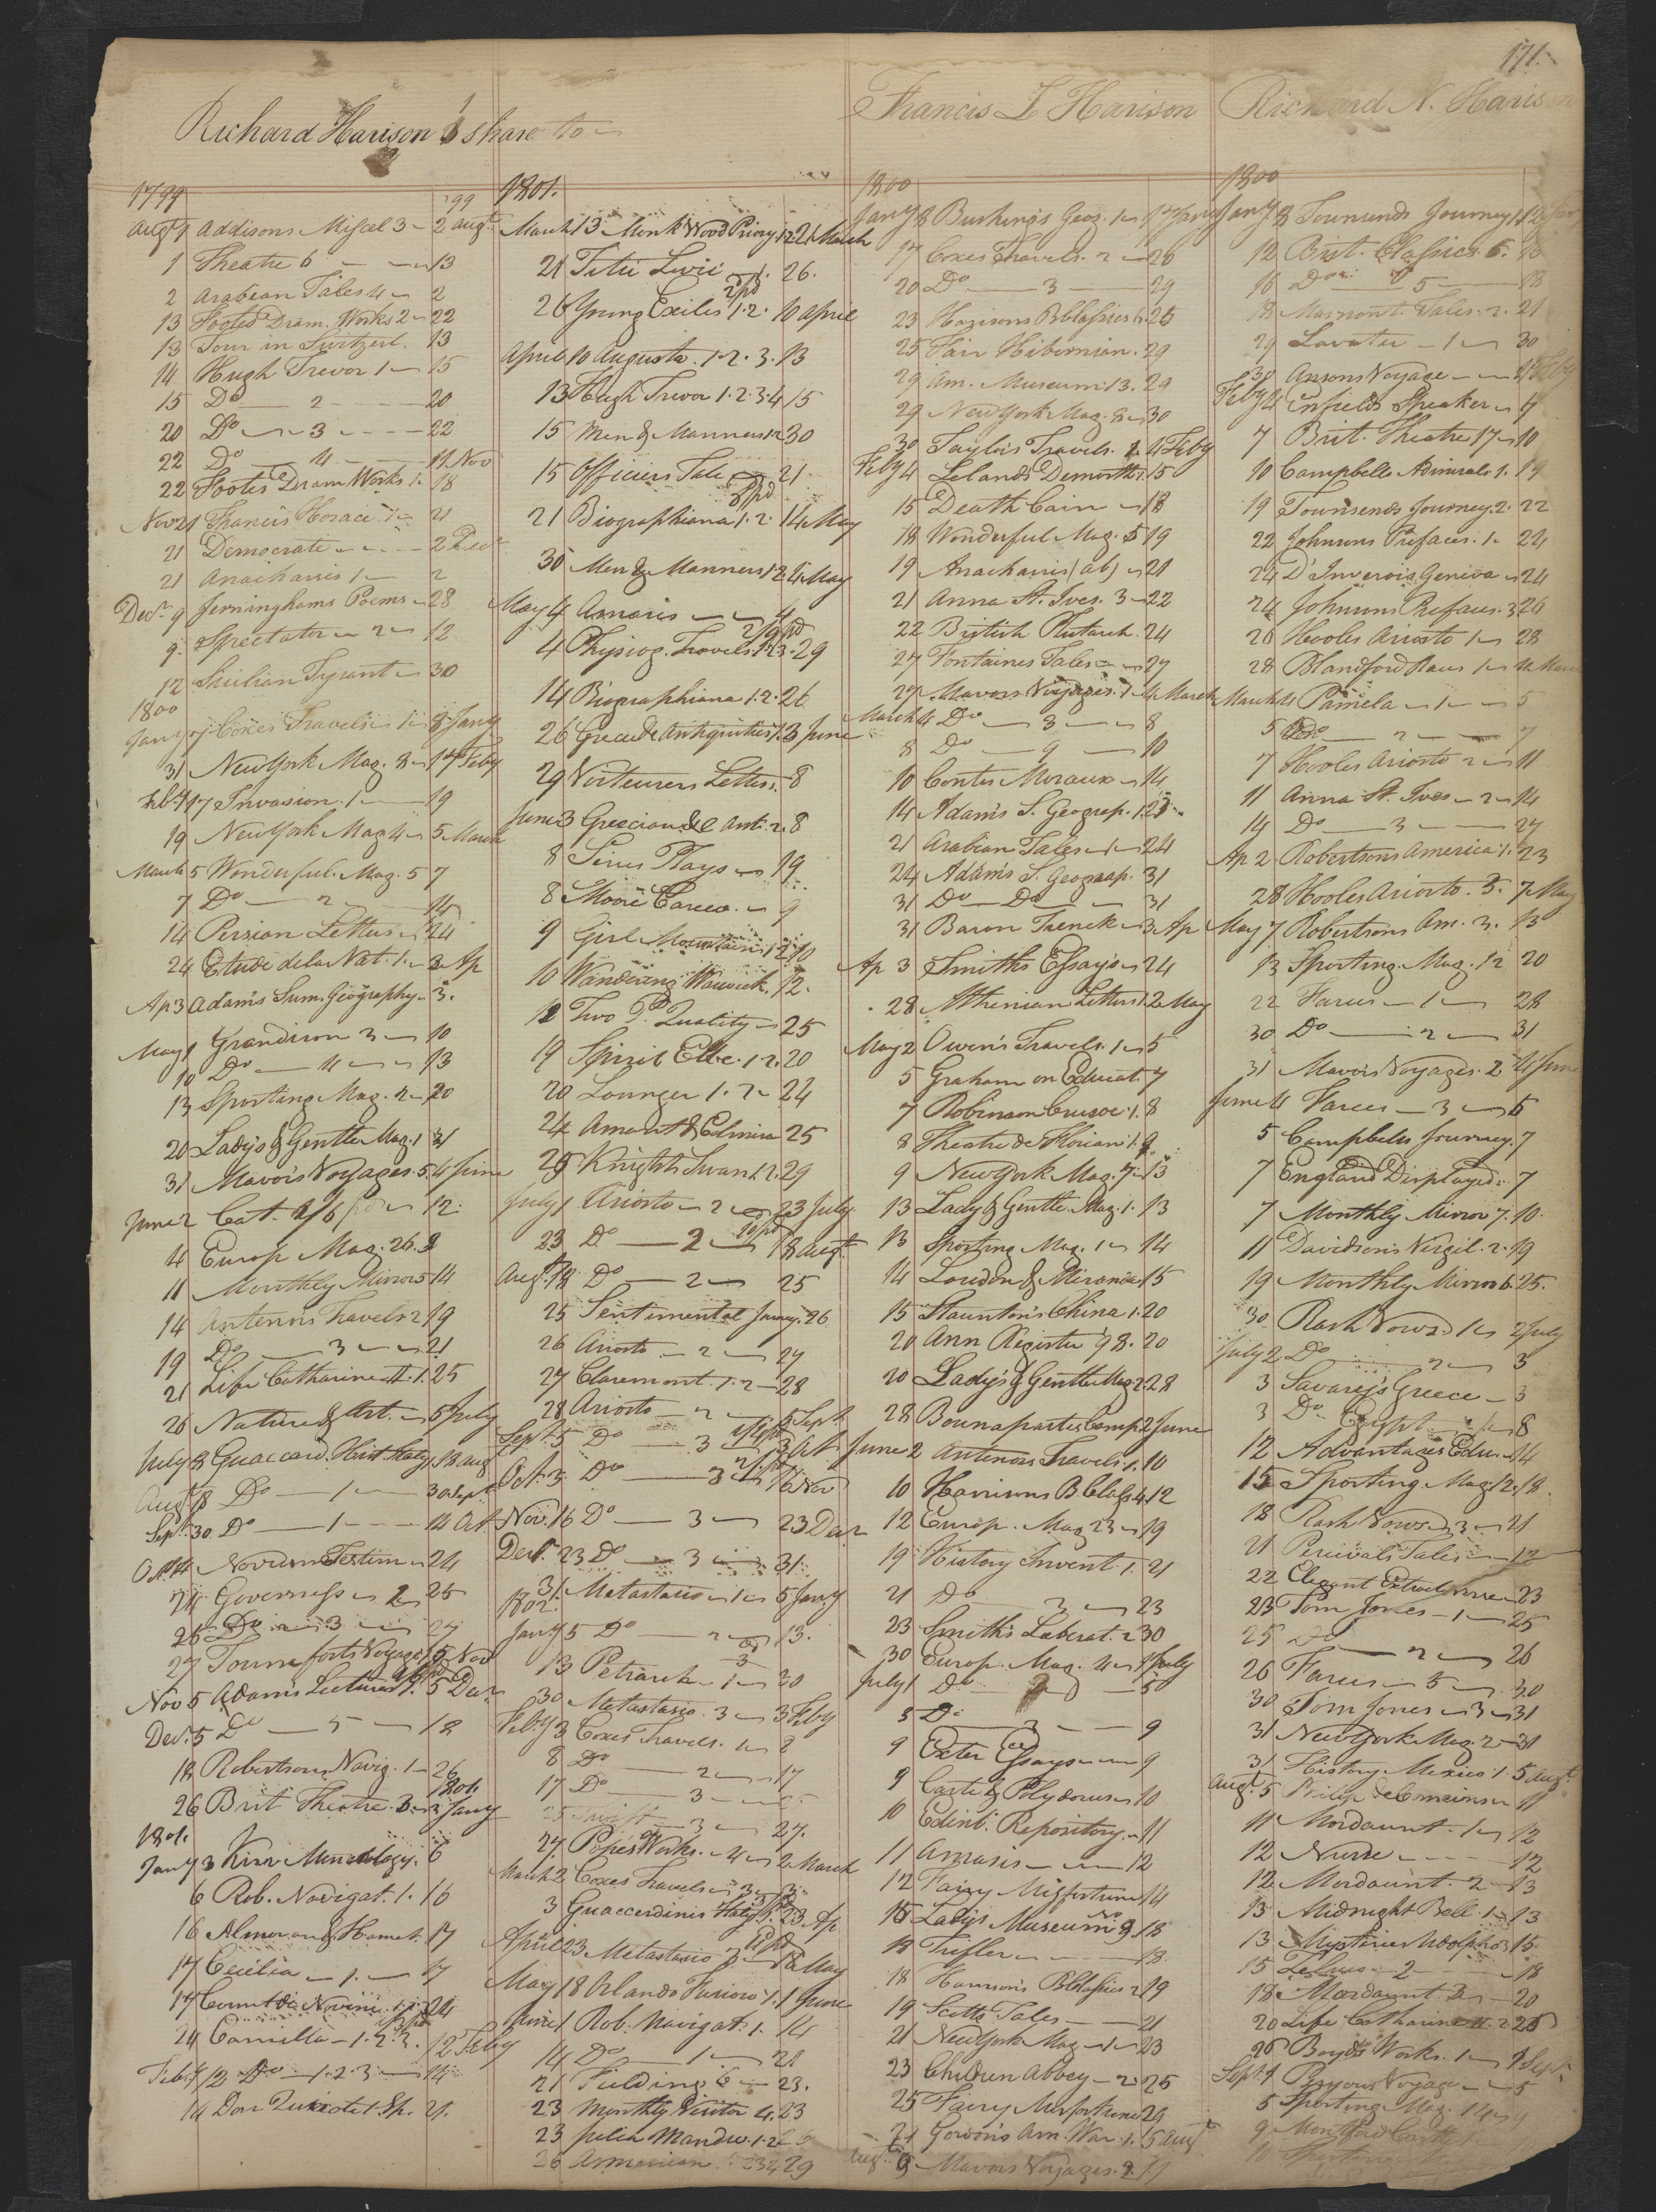 171.
Richard Harison 1 share to
Francis L Harison
Richard N. Harison
1799 99
Augt 1 Addisons Miscel 3 2 augt
1 Theatre 6 13
2 Arabian Tales 4 2
13 Footes Dram. Works 2 22
13 Tour in Switzerl. 13
14 Hugh Trevor 1 15
15 Do 2 20
20 Do 3 22
22 Do 4 11 Nov
22 Footes Dram Works 1. 18
Nov 21 Francis Horace 1 21
21 Democrate 2 Decr
21 Anacharsis 1 2
Decr 9 Jerninghams Poems 28
9 Spectator 2 12
12 Sicilian Tyrant 30
1800
Jany 7 Coxes Travels 1 8 Jany
31 NewYork Mag. 8 17 Feby
Feby 17 Invasion. 1 19
19 NewYork Mag 4 5 March
March 5 Wonderful. Mag. 5 7
7 Do 2 14
14 Persian Letters 24
24 Etude de la Nat. 1. 3 Ap
Ap 3 Adams Sum. Geography 3.
May 1 Grandison 3 10
10 Do 4 13
13 Sporting Mag. 2 20
20 Lady's & Gentle Mag. 1 31
31 Mavor's Voyages. 5. 4 June
June 2 Cat. 2/6 pd 12
4 Europ Mag. 26. 9
11 Monthly Mirror 5 14
14 Antenors Travels 2 19
19 Do 3 21
21 Life Catharine II. 1. 25
26 Nature & Art. 5 July
July 8 Guaccard. Hist. Italy. 18 aug
Augt 18 Do 1 30 Sept
Sept. 30 Do 1 14 Oct
Oct 14 Novum Testim 24
24 Governess 2 25
25 Do 3 27
27 Tournforts Voyage 1 5 Nov
Nov 5 Adams Lectures 1. 5 Decr
Decr. 5 Do 5 18
18 Robertsons Navig. 1 26
1801.
26 Brit Theatre. 3. 3 Jany
1801.
Jany 3 Kirw Mineralogy. 6
6 Rob. Navigat. 1. 16
16 Almoran & Hamet. 17
17 Cecilia 1. 17
17 Count de Novini 1. 24
24 Camilla 1. 2. 3. 12 Feby
Feby 12 Do 1. 2. 3 14
14 Don Quixote 1. Sp. 21.
1801.
March 13 Monk Wood Priory 1.2 21 March
21 Titii Livii 1. 26.
26 Young Exiles 1. 2. 10 april
April 10 Augusta. 1. 2. 3. 13
13 Hugh Trevor 1. 2. 3. 4 15
15 Men & Manners 1.2 30
15 Officers Tale 21
21 Biographiana 1. 2. 14 May
30 Men & Manners 1 2 4 May
May 4 Amasis 4
4 Physiog. Travels 1. 2. 3. 29
14 Biographiana 1. 2. 26
26 Grecid Antiquities 1. 3 June
29 Vorteurers Letters. 8
June 3 Grecian Antt. 2. 8
8 Sirius Plays 19
8 Moore Carew. 9
9 Girl Mountains 1 2 10
10 Wandering Warwick. 12.
12 Two P. Quality 25
19 Spirit Elbe. 1. 2. 20
20 Lounger 1. 2 24
24 Amant & Elmira 25
25 Knights Swan 1. 2. 29
July 1 Ariosto 2 23 July
23 Do 2 18 Augt
Augt. 18 Do 2 25
25 Sentimental Journy. 26
26 Ariosto 2 27
27 Claremont. 1. 2 28
28 Ariosto 2 5 Sept.
Sept. 5 Do 3 3 Oct
Oct. 3. Do 3 16 Nov
Nov. 16 Do 3 23 Decr
Decr. 23 Do 3 31.
31 Metastasio 1 5 Jany
1802.
Jany 5 Do 2 or 3 13.
13 Petrarch 1 30
30 Metastasio. 3 3 Feby
Feby 3 Coxes Travels. 1 8
8 Do 2 17
17 Do 3
25 Swift 3 27.
27. Popes Works. 4 2 March
March 2 Coxes Travels 3 3
3 Guaccerdinis Italy 1. 23 Ap
April 23 Metastasio 18 May
May 18 Orlando Furioso 1. 1 June
June 1 Rob. Navigat. 1. 14
14 Do 1 21
21 Fielding 6 23.
23 Monthly Visitor 4. 23
23 Julia Mandw. 1. 2
26 Armenian 234 29
1800
Jany 8 Bushings Geog. 1 17 Jany
17 Coxes Travels. 2 20
20 Do 3 29
23 Harisons B Classics 6. 25
25 Fair Hibernian. 29
29 Am. Museum 13. 29
29 NewYork Mag. 8 30
30 Taylors Travels. 2 4 Feby
Feby 4 Lelands Demosth. 15
15 Death Cain 18
18 Wonderful Mag. 5 19
19 Anacharsis (ab) 21
21 Anna St. Ives. 3 22
22 British Plutarch. 24
27 Fontaines Tales 27
27 Mavors Voyages. 1 4 March
March 4 Do 3 8
8 Do 9 10
10 Contes Moraux 14
14 Adams S. Geograp. 1. 21
21 Arabian Tales 1 24
24 Adams S. Geograp. 31
31 Do Do 31
31 Baron Trenck 3 Ap
Ap 3 Smiths Essays 24
28 Athenian Letters 1. 2 May
May 2 Owen's Travels. 1 5
5 Graham on Educat. 7
7 Robinson Crusoe. 1. 8
8 Theatre de Florian 1. 9
9 NewYork Mag. 7 13
13 Lady & Gentle. Mag. 1. 13
13 Sporting Mag. 1 14
14 Loudon & Miranda 15
15 Staunton's China 1. 20
20 Ann Register 98. 20
20 Lady's & Gentle Mag 2. 28
28 Bounaparte Camp 2 June
June 2 Antenors Travels 1. 10
10 Harrisons B Class 4. 12
12 Europ. Mag 23 19
19 History Invent. 1. 21
21 Do 3 23
23 Smith's Laberat. 2 30
30 Europ. Mag. 4 1 July
July 1 Do 5
5 Do 3 9
9 Exter Essays 9
9 Carte & Plydorus 10
10 Edinb. Repository. 11
11 Amasis 12
12 Fairy Misfortune 14
15 Ladys Museum No 9 18
18 Trifler 18.
18 Harrison's B Classics 2 19
19 Scotts Tales 21
21 NewYork Mag 1 23
23 Children Abbey 2 25
25 Fairy Misfortune 29
29 Gordon's Am. War. 1. 5 Augt
Augt 9 Mavors Voyages. 2. 11
1800
Jany 8 Townsends Journey 1 12 Jany
12 Brit. Classics. 6. 16
16 Do 5 18
18 Marmont. Tales. 2. 21
29 Lavater 1 30
30 Ansons Voyage 4 Feby
Feby 4 Enfields Speaker 7
7 Brit. Theatre 17 10
10 Campbells Admirals. 1. 19
19 Townsends Journey. 2. 22
22 Johnsons Prefaces. 1. 24
24 D'Inverois Geneva 24
24 Johnsons Prefaces. 3 26
26 Hooles Ariosto 1 28
28 Blandford Races 1 4 March
March 4 Pamela 1 5
5 Do 2 7
7 Hooles Ariosto 2 11
11 Anna St. Ives 2 14
14 Do 3 27
Ap 2 Robertsons America 1. 23
28 Hooles Ariosto. 3. 7 May
May 7 Robertsons Am. 3. 13
13 Sporting. Mag. 12 20
22 Farces 1 28
30 Do 2 31
31 Mavors Voyages. 2 4 June
June 4 Farces 3 5
5 Campbells Journey. 7
7 England Displayed. 7
7 Monthly Mirror 7. 10.
11 Davidson's Virgil. 2. 19
19 Monthly Mirror 6. 25.
30. Rash Vows 1 2 July
July 2 Do 2 3
3 Savary's Greece 3
3 Do Egypt 1 8
12 Advantages Edu. 14
15 Sporting. Mag. 12. 18.
18 Rash Vows 3 21
21 Percivals Tales 12
22 Elegant Extracts 23
23 Tom Jones 1 25
25 Do 2 26
26 Farces 5 30
30 Tom Jones 3 31
31 NewYork Mag. 2 31
31 History Mexico 1. 5 Augt.
Augt. 5 Philip de Comeins 11
11 Mordaunt. 1 12
12 Nurse 12
12 Mordaunt. 2 13
13 Midnight Bell 1 13
13 Mysteries Udolpho 3 15
15 2 18
18 Mordaunt 3 20
20 Life Catharine II. 2 26
26 Boyds Works. 1 1 Sept.
Sept. 1 Voyage 5
5 Sporting Mag. 14 9
9 Montford Castle
Sporting